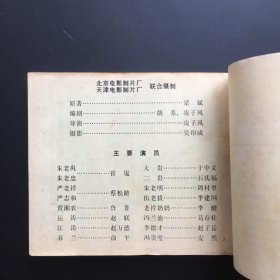 北京电影制片厂
天津电影制片厂 联合摄制
原著 梁斌
编剧 胡苏、凌子风
导演 凌子风
摄影 吴印咸
主要演员
朱老巩
朱老忠 崔嵬
严老祥
严志和 蔡松龄
贾湘农 鲁非
运涛 赵联
江涛 赵万德
春兰 俞平
大贵 于中义
二贵 石庆福
朱老明 周村里
伍老拔 李建国
老驴头 李健
冯兰池 葛存壮
李德才 赵子岳
冯贵堂 安然